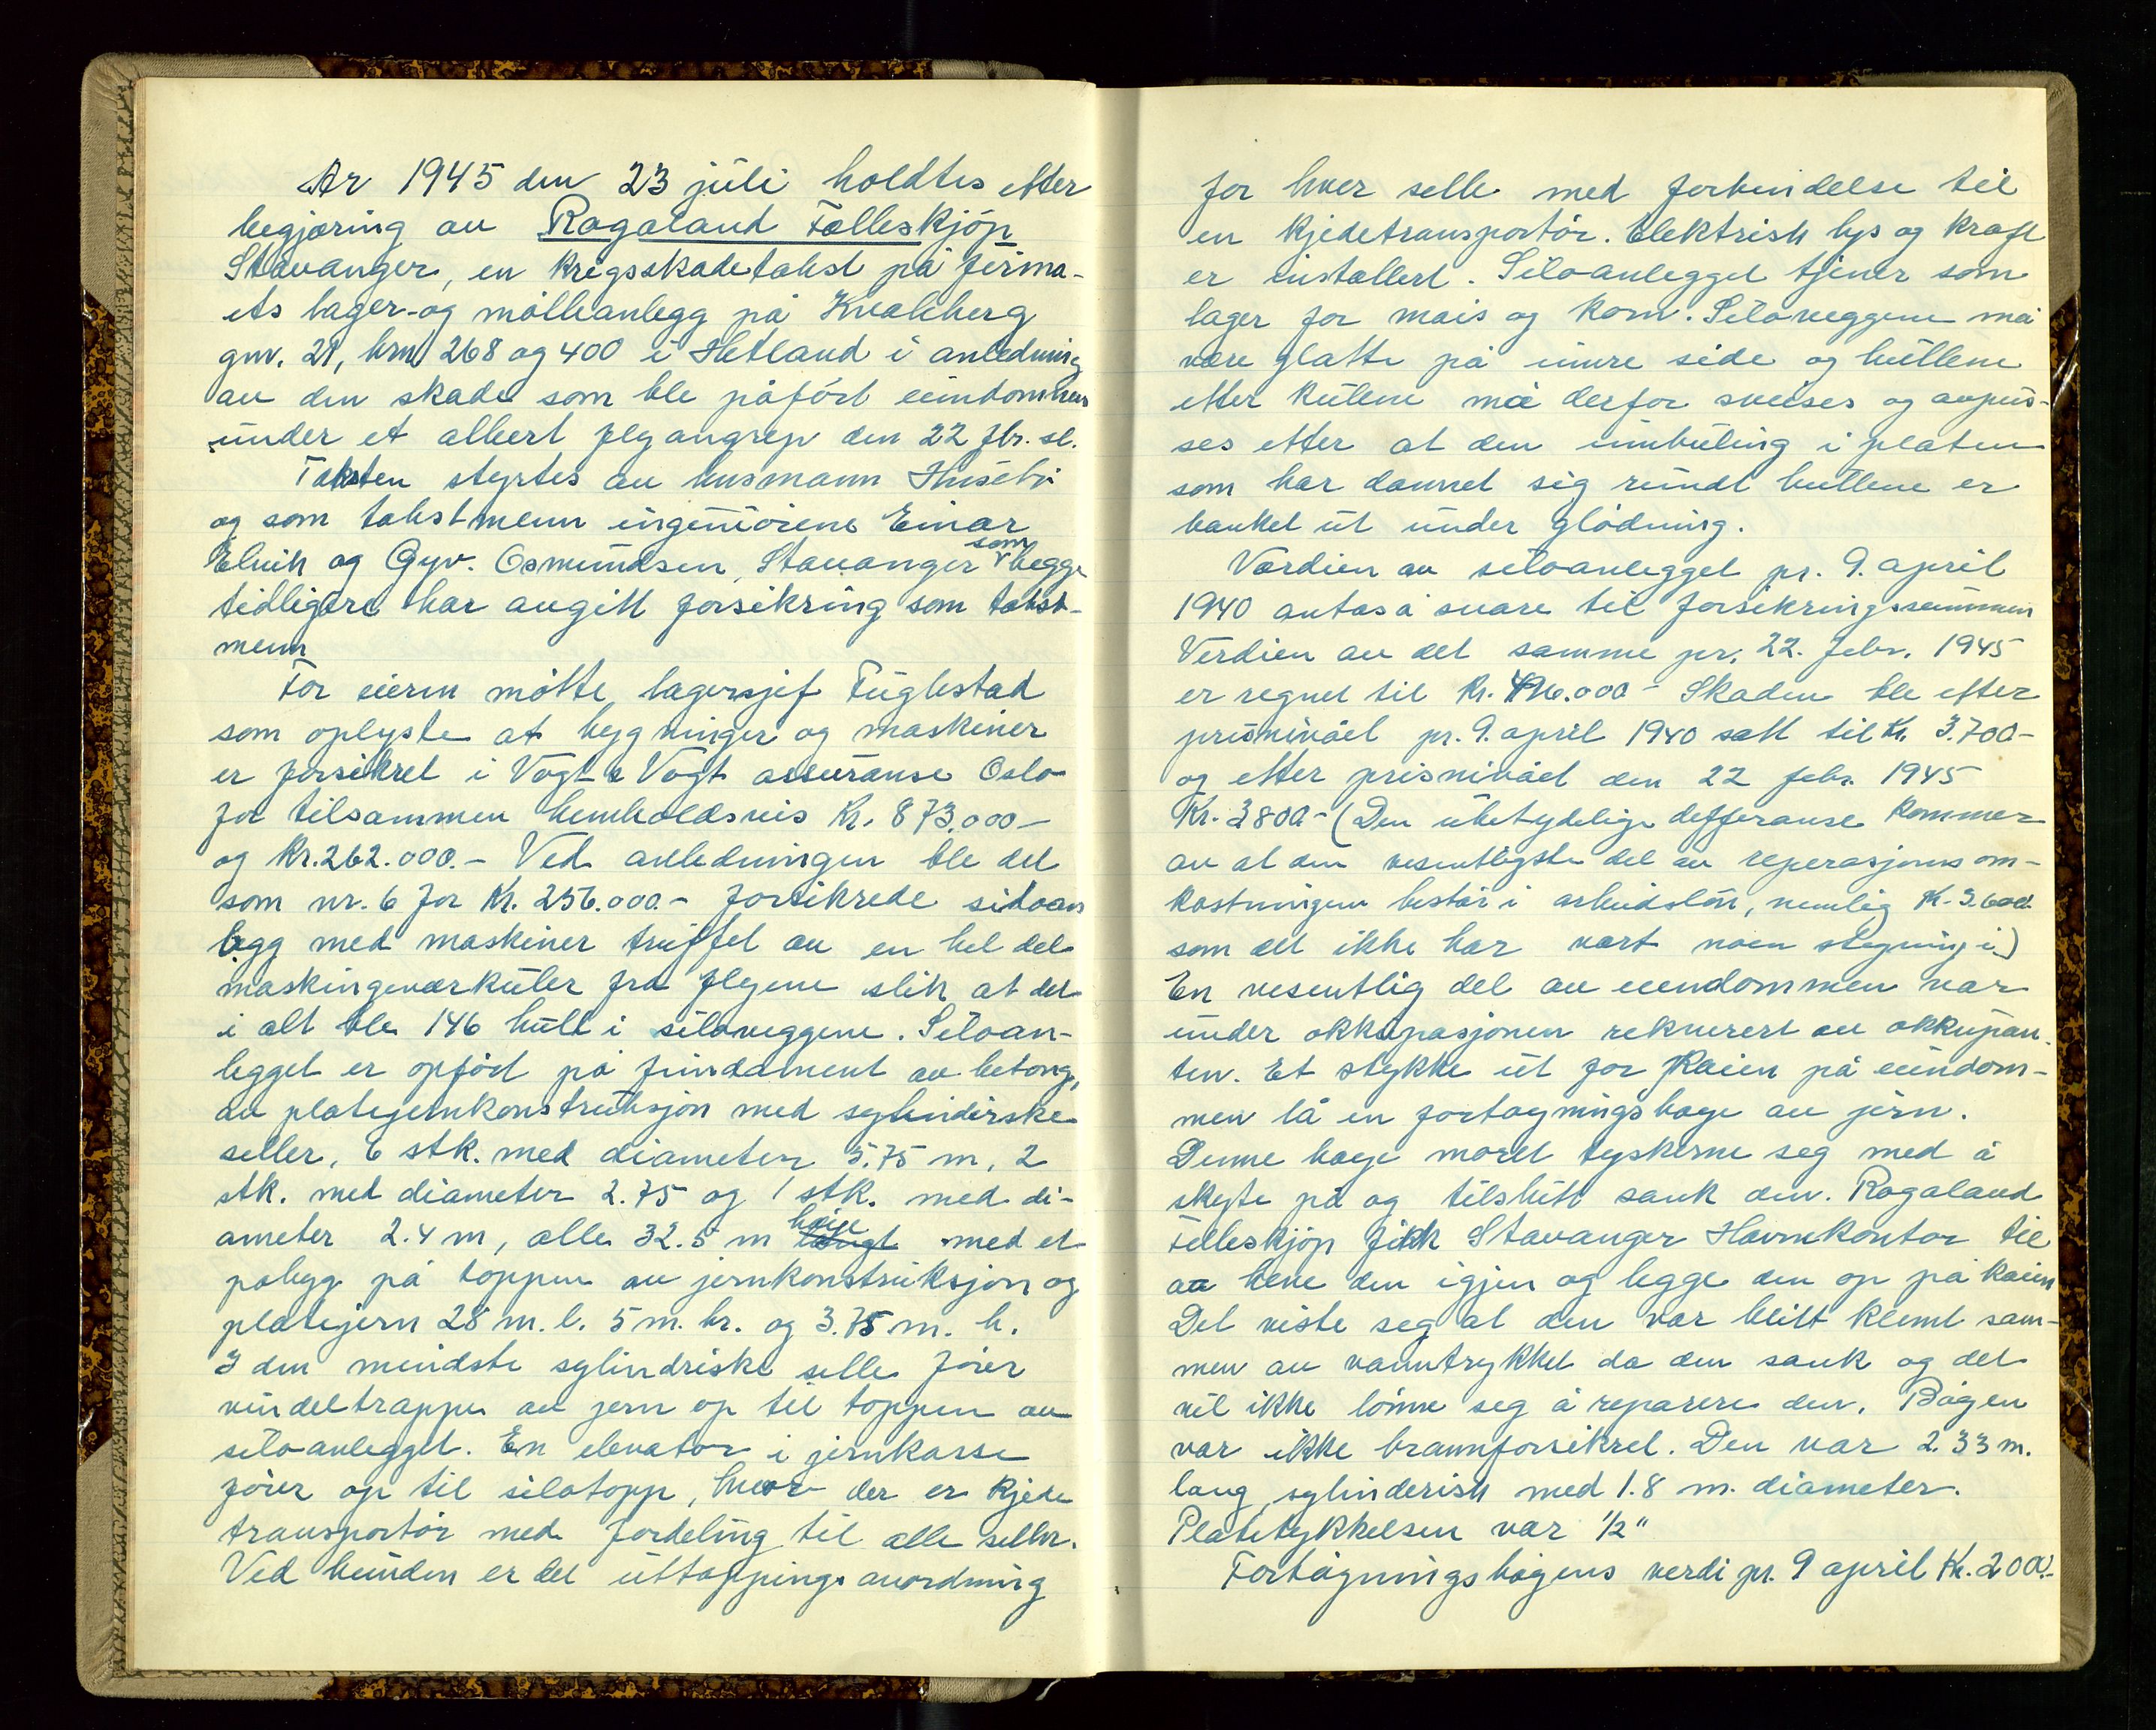 År 1945 den 23 juli holdtes efter
begjæring av Rogaland Felleskjöp
Stavanger, en krigsskadetakst på firma-
ets lager- og mölleanlegg på Kvaleberg
gnr. 21, brn 268 og 400 i Hetland i anledning
av den skade som ble påfört eiendommen
under et alliert flyangrep den 22 fbr. sl.
Taksten styrtes av lensmann Husebö
og som takstmenn ingeniörene Einar
Elvik og Gyv. Osmundsen, Stavanger som begge
tidligere har avgitt forsikring som takst-
menn
For eieren mötte lagersjef Fuglestad
som oplyste at bygninger og maskiner
er forsikret i Vogt & Vogt assuranse Oslo
for tilsammen henholdsvis Kr. 873.000-
og Kr. 262.000.- Ved anledningen ble det
som nr. 6 for Kr. 256.000.- forsikrede siloan
legg med maskiner truffet av en hel del
maskingeværkuler fra flyene slik at det
i alt ble 146 hull i siloveggene. Siloan-
legget er opfört på fundament av betong,
av platejernkonstruksjon med sylinderske
seller, 6 stk. med diameter 5.75 m, 2
stk. med diameter 2.75 og 1 stk. med di-
ameter 2.4 m, alle 32.5 m höie med et
påbygg på toppen av jernkonstruksjon og
platejern 28 m. l. 5 m. br. og 3.75 m. h.
I den mindste sylindriske selle förer
vindeltrappe av jern op til toppen av
siloanlegget. En elevator i jernkasse
förer op til silotopp, hvor der er kjede
transportör med fordeling til alle seller.
Ved bunden er det uttappingsanordning
for hver selle med forbindelse til
en kjedetransportör. Elektrisk lys og kraft
er installert. Siloanlegget tjener som
lager for mais og korn. Siloveggene må
være glatte på innre side og hullene
etter kulene må derfor sveises og avpus-
ses etter at den innbuling i platen
som har dannet sig rundt hullene er
banket ut under glödning.
Værdien av siloanlegget pr. 9. april
1940 antas å svare til forsikringssummen
Verdien av det samme pr. 22. febr. 1945
er regnet til Kr. 496.000- Skaden ble efter
prisnivået pr. 9. april 1940 satt til Kr. 3.700-
og etter prisnivået den 22 febr. 1945
Kr. 3800- (Den ubetydelige defferanse kommer
av at den vesentligste del av reperasjonsom-
kostningen består i arbeidslön, nemlig Kr. 3.600.
som det ikke har vært noen stegning i)
En vesentlig del av eiendommen var
under okkupasjonen rekvirert av okkupan-
ten. Et stykke ut for kaien på eiendom-
men lå en fortøyningsbøye av jern.
Denne bøye moret tyskerne seg med å
skyte på og tilslutt sank den. Rogaland
Felleskjöp fikk Stavanger Havnekontor til
aa heve den igjen og legge den op på kaien
Det viste seg at den var blitt klemt sam-
men av vanntrykket da den sank og det
vil ikke lönne seg å reparere den. Böyen
var ikke brannforsikret. Den var 2.33 m.
lang, sylinderisk med 1.8 m. diameter.
Platetykkelsen var 1/2"
Fortöyningsböyens verdi pr. 9 april Kr. 2000.-